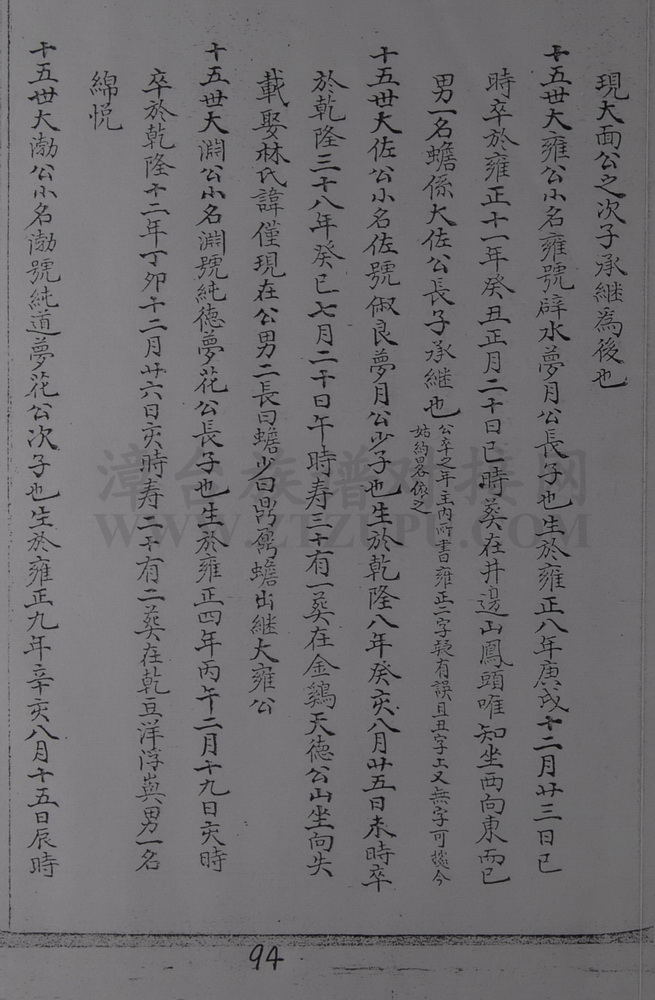 現大面公之次子承継為後也
十五世大雍公小名雍號辟水夢月公長子也生於雍正八年庚戍十二月廿三日巳
時卒於雍正十一年癸丑正月二十日巳時葵在井邊山鳳頭唯知坐西向東而已
男一名蟾係大佐公長子承継也公卒之年主內所書雍正二字疑有誤且丑字上又無字可據今
姑約畧係之
十五世大佐公小名佐號俶良夢月公少子也生於乾隆八年癸亥八月廿五日未時卒
於乾隆三十八年癸巳七月二十日午時寿三十有一葵在金鷄天德公山坐向失
載娶林氏諱僅現在公男二長曰蟾少曰鼎厲蟾出継大雍公
十五世大淵公小名淵號純德夢花公長子也生於雍正四年丙午二月十九日亥時
卒於乾隆十二年丁卯十二月廿六日亥時寿二十有二葵在乾豆洋浮嵔男一名
綿悅
十五世大渤公小名渤號純道夢花公次子也生於雍正九年辛亥八月十五日辰時
漳台族譜对接网
WWW.ZTZUPU.COM
94